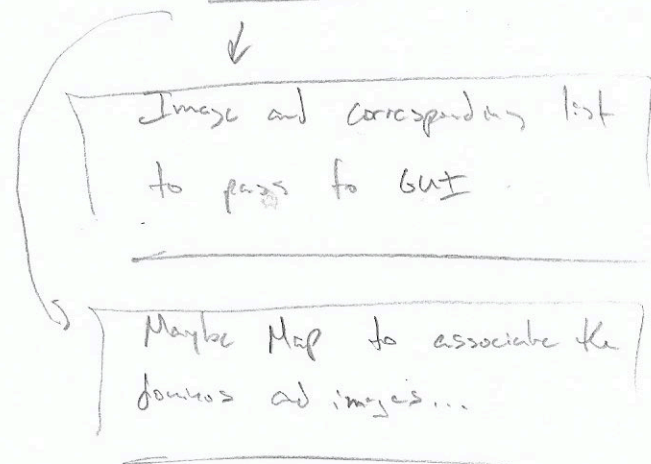 Image and corresponding list
to pass to GUI
Maybe Map to associate the
dominos and images...